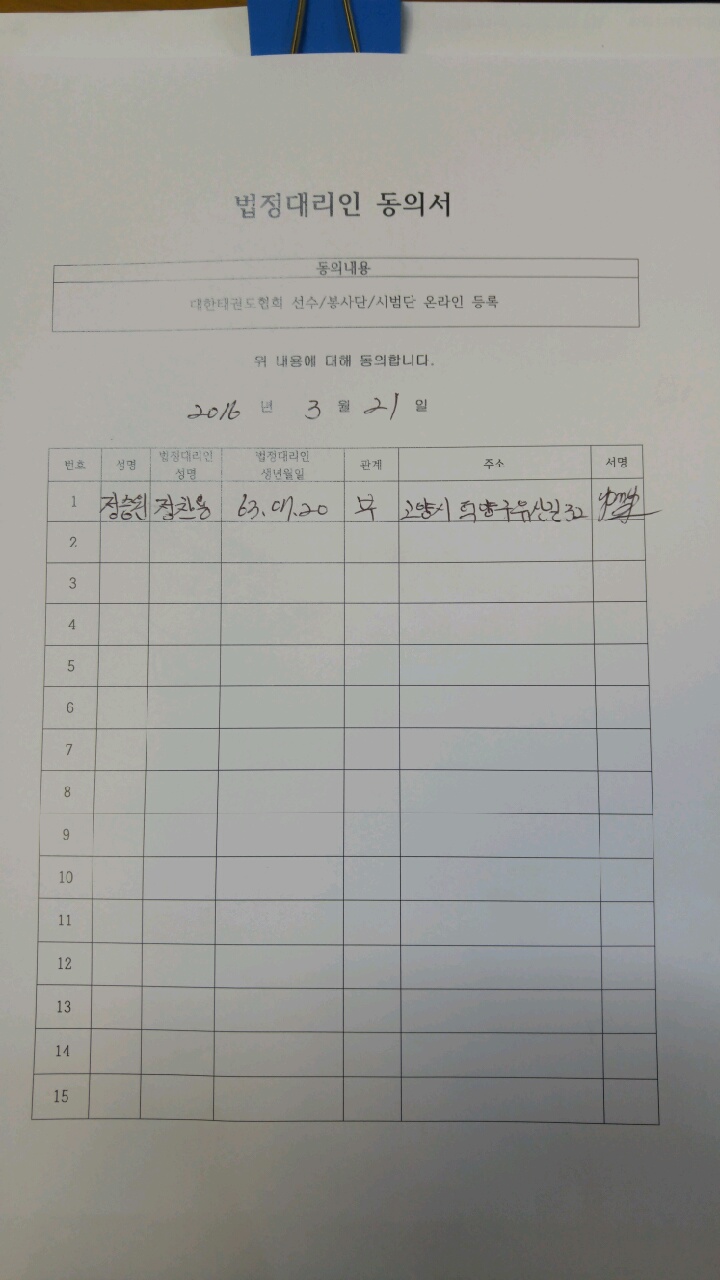 법정대리인 동의서
동의내용
대한태권도협회 선수/봉사단/시범단 온라인 등록
위 내용에 대해 동의합니다.
2016 년 3 월 21 일
번호 성명 법정대리인 성명 법정대리인 생년월일 관계 주소 서명
1 정승원 정찬용 63.07.20 부 고양시 덕양구 유산길 32
2
3
4
5
6
7
8
9
10
11
12
13
14
15